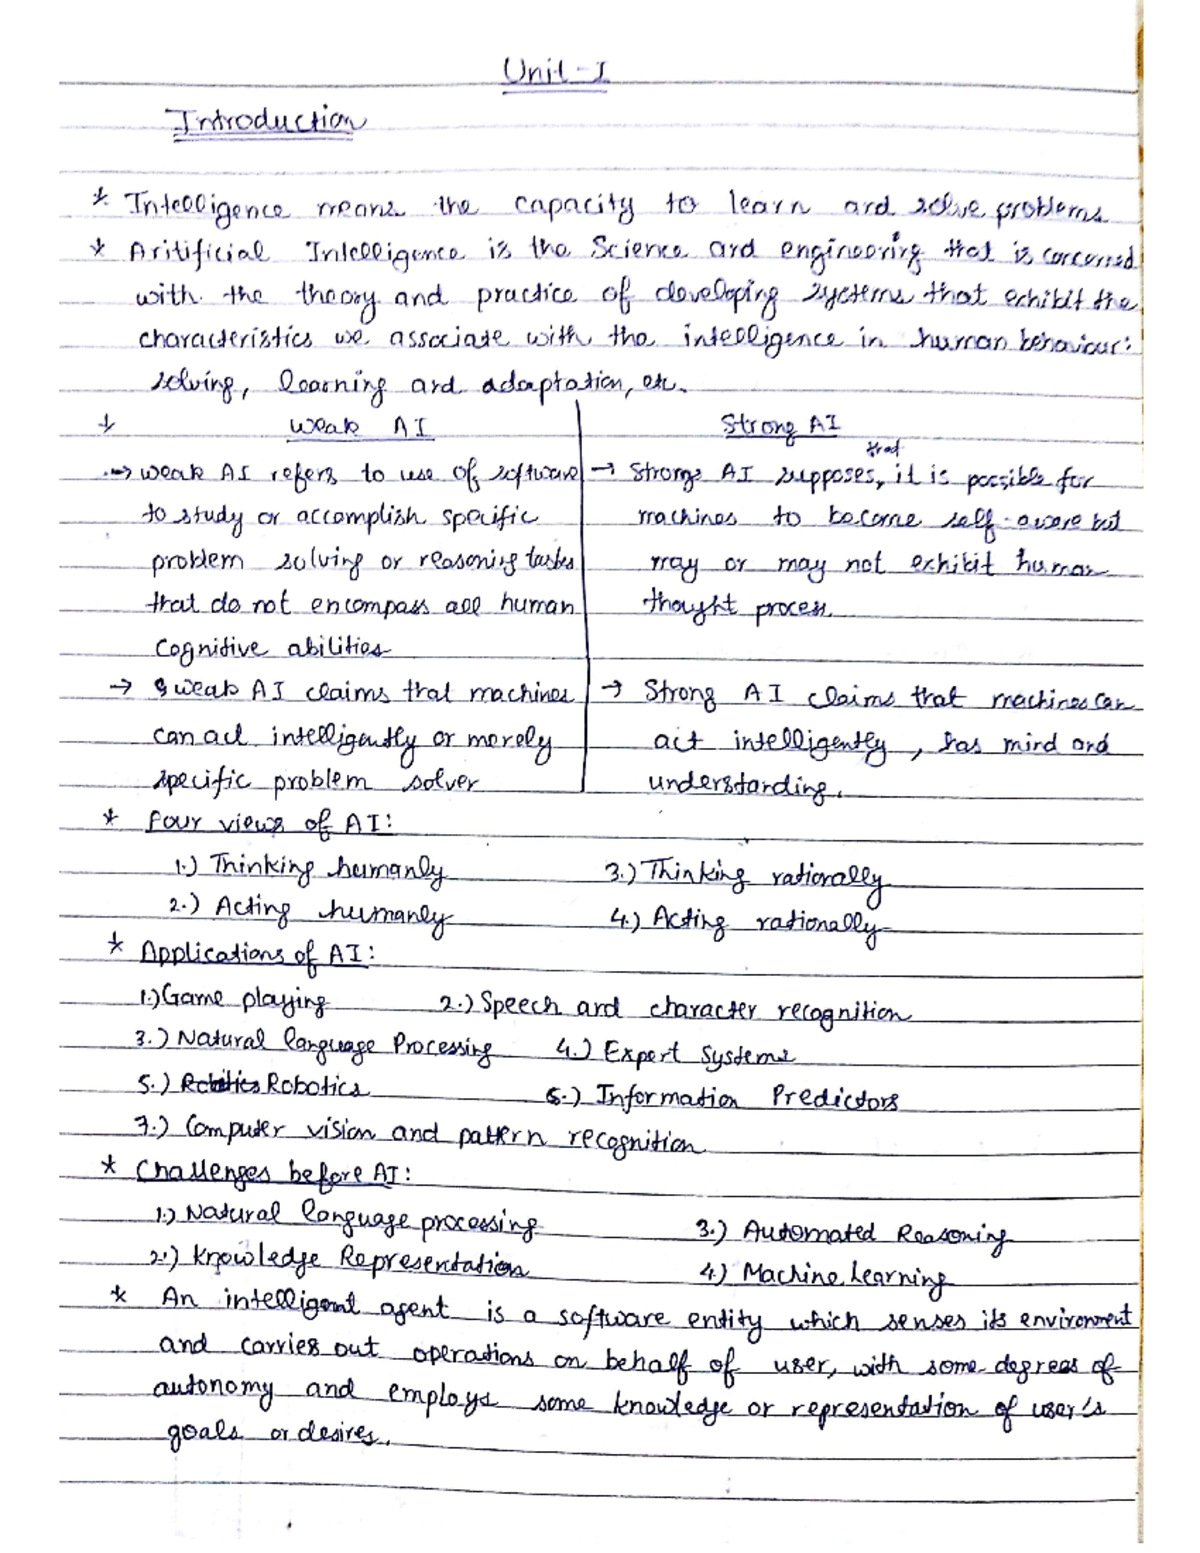 Unit-I
Introduction
* Intelligence means the capacity to learn and solve problems
* Aritificial Intelligence is the Science and engineering that is concerned
with the theory and practice of developing systems that exhibit the
characteristics we associate with the intelligence in human behaviour:
solving, learning and adaptation, etc.
* Weak AI
→ Weak AI refers to use of software
to study or accomplish specific
problem solving or reasoning tasks
that do not encompass all human
Cognitive abilities
→ Weak AI claims that machines
can act intelligently or merely
specific problem solver
Strong AI
that
→ Strong AI supposes, it is possible for
machines to become self-aware but
may or may not exhibit human
thought process
→ Strong AI claims that machines can
act intelligently, has mind and
understanding.
* Four views of AI:
1.) Thinking humanly 3.) Thinking rationally
2.) Acting humanly 4.) Acting rationally
* Applications of AI:
1.) Game playing 2.) Speech and character recognition
3.) Natural language Processing 4.) Expert Systems
5.) Robotics 6.) Information Predictors
7.) Computer vision and pattern recognition
* Challenges before AI:
1.) Natural language processing 3.) Automated Reasoning
2.) Knowledge Representation 4.) Machine Learning
* An intelligent agent is a software entity which senses its environment
and carries out operations on behalf of user, with some degrees of
autonomy and employs some knowledge or representation of user's
goals or desires.